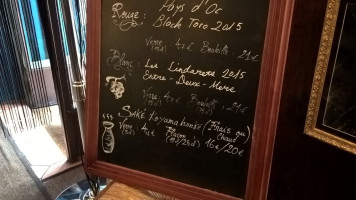 Rouge : Pays d'Oc
Black Toro 2015
Verre 4€ Bouteille 21€
Blanc : Les Lindarets 2015
Entre-Deux-Mers
Verre 4€ Bouteille 21€
Saké (Frais ou
Chaud
Verre 4€ Flacon 16€/20€